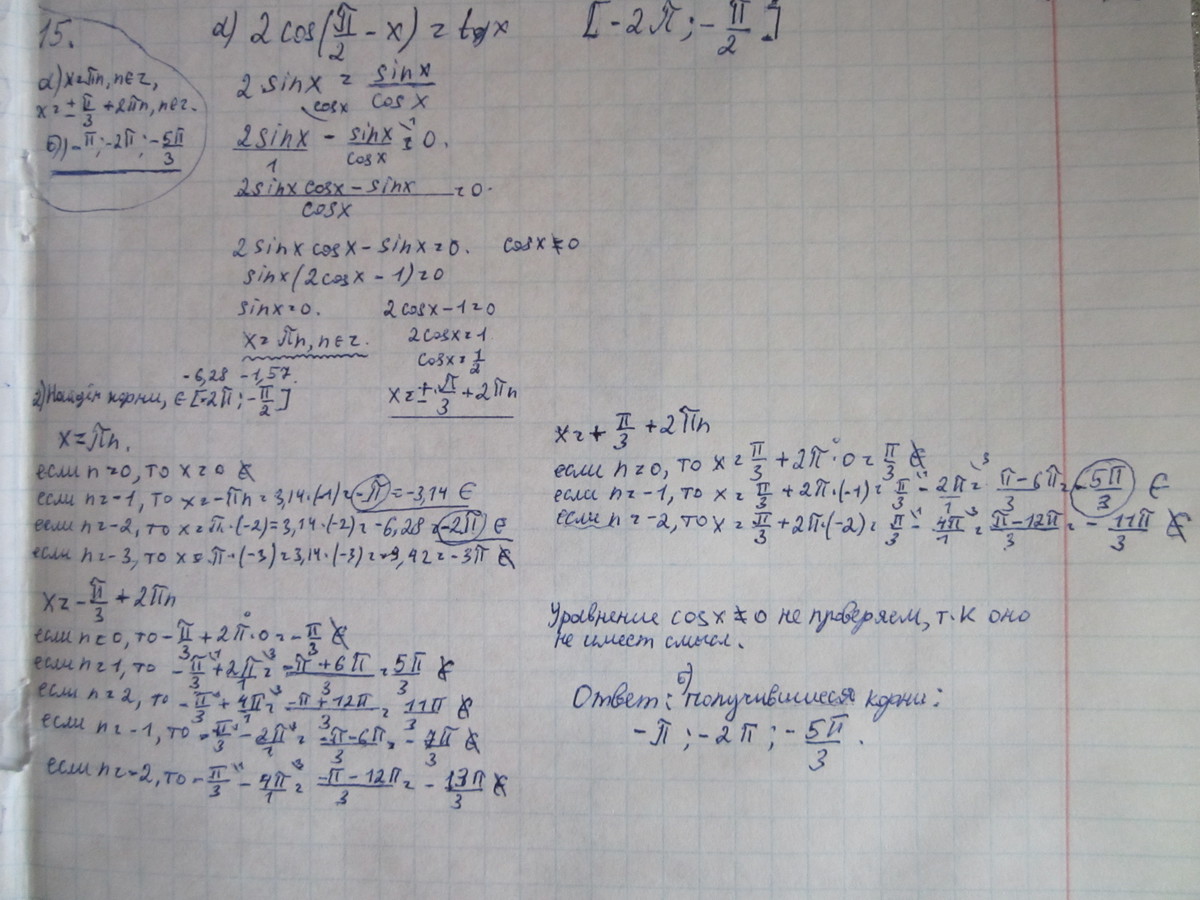 15.
а) x=πn, n∈z,
x=±π/3+2πn, n∈z.
б) -π; -2π; -5π/3
а) 2cos(π/2 - x) = tgx [-2π; -π/2]
2sinx = sinx/cosx
2sinx/1 - sinx/cosx = 0.
(2sinx cosx - sinx)/cosx = 0.
2sinx cosx - sinx = 0. cosx ≠ 0
sinx(2cosx - 1) = 0
sinx = 0. 2cosx - 1 = 0
x = πn, n∈z. 2cosx = 1
cosx = 1/2
x = ±π/3 + 2πn
-6,28 -1,57
2) Найдём корни, ∈ [-2π; -π/2]
x = πn.
если n=0, то x=0 ∉
если n=-1, то x=-πn=3,14·(-1)=-π=-3,14 ∈
если n=-2, то x=π·(-2)=3,14·(-2)=-6,28=-2π ∈
если n=-3, то x=π·(-3)=3,14·(-3)=-9,42=-3π ∉
x=-π/3+2πn
если n=0, то -π/3+2π·0=-π/3 ∉
если n=1, то -π/3+2π/1=(-π+6π)/3=5π/3 ∉
если n=2, то -π/3+4π/1=(-π+12π)/3=11π/3 ∉
если n=-1, то -π/3-2π/1=(-π-6π)/3=-7π/3 ∉
если n=-2, то -π/3-4π/1=(-π-12π)/3=-13π/3 ∉
x=+π/3+2πn
если n=0, то x=π/3+2π·0=π/3 ∉
если n=-1, то x=π/3+2π·(-1)=π/3-2π/1=(π-6π)/3=-5π/3 ∈
если n=-2, то x=π/3+2π·(-2)=π/3-4π/1=(π-12π)/3=-11π/3 ∉
Уравнение cosx≠0 не проверяем, т.к оно
не имеет смысл.
Ответ: б) получившиеся корни:
-π; -2π; -5π/3.